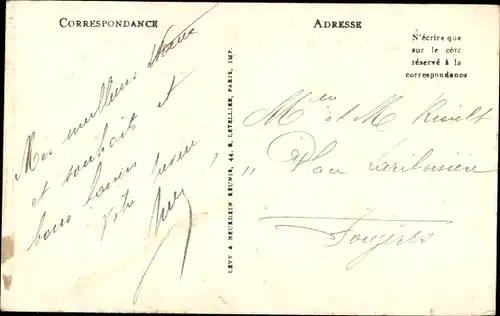 CORRESPONDANCE
ADRESSE
N'écrire que
sur le côté
réservé à la
correspondance
Mes meilleurs
et souhait et
bons baisers
Votre
LEVY & NEURDEIN RÉUNIS, 44, R. LETELLIER, PARIS, IMP.
et M Rioult
Place Lariboisière
Fougères